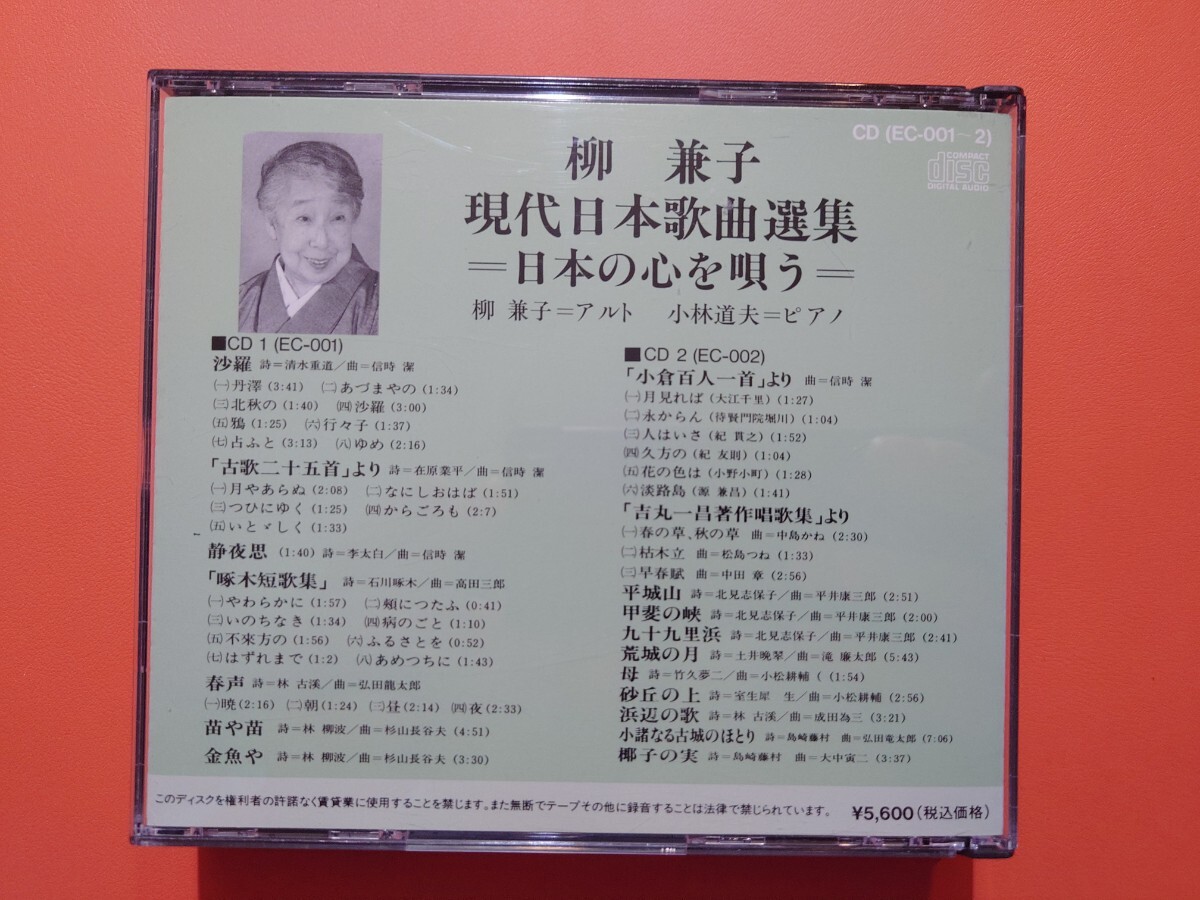 CD (EC-001～2)
COMPACT
disc
DIGITAL AUDIO
柳 兼子
現代日本歌曲選集
＝日本の心を唄う＝
柳 兼子＝アルト 小林道夫＝ピアノ
■CD 1 (EC-001)
沙羅 詩＝清水重道／曲＝信時 潔
㈠丹澤(3:41) ㈡あづまやの(1:34)
㈢北秋の(1:40) ㈣沙羅(3:00)
㈤鴉(1:25) ㈥行々子(1:37)
㈦占ふと(3:13) ㈧ゆめ(2:16)
「古歌二十五首」より 詩＝在原業平／曲＝信時 潔
㈠月やあらぬ(2:08) ㈡なにしおはば(1:51)
㈢つひにゆく(1:25) ㈣からごろも(2:7)
㈤いとゞしく(1:33)
静夜思 (1:40) 詩＝李太白／曲＝信時 潔
「啄木短歌集」 詩＝石川啄木／曲＝高田三郎
㈠やわらかに(1:57) ㈡頬につたふ(0:41)
㈢いのちなき(1:34) ㈣病のごと(1:10)
㈤不來方の(1:56) ㈥ふるさとを(0:52)
㈦はずれまで(1:2) ㈧あめつちに(1:43)
春声 詩＝林 古溪／曲＝弘田龍太郎
㈠暁(2:16) ㈡朝(1:24) ㈢昼(2:14) ㈣夜(2:33)
苗や苗 詩＝林 柳波／曲＝杉山長谷夫(4:51)
金魚や 詩＝林 柳波／曲＝杉山長谷夫(3:30)
■CD 2 (EC-002)
「小倉百人一首」より 曲＝信時 潔
㈠月見れば(大江千里)(1:27)
㈡永からん(待賢門院堀川)(1:04)
㈢人はいさ(紀 貫之)(1:52)
㈣久方の(紀 友則)(1:04)
㈤花の色は(小野小町)(1:28)
㈥淡路島(源 兼昌)(1:41)
「吉丸一昌著作唱歌集」より
㈠春の草、秋の草 曲＝中島かね(2:30)
㈡枯木立 曲＝松島つね(1:33)
㈢早春賦 曲＝中田 章(2:56)
平城山 詩＝北見志保子／曲＝平井康三郎(2:51)
甲斐の峡 詩＝北見志保子／曲＝平井康三郎(2:00)
九十九里浜 詩＝北見志保子／曲＝平井康三郎(2:41)
荒城の月 詩＝土井晩翠／曲＝滝 廉太郎(5:43)
母 詩＝竹久夢二／曲＝小松耕輔 ( (1:54)
砂丘の上 詩＝室生犀 生／曲＝小松耕輔(2:56)
浜辺の歌 詩＝林 古溪／曲＝成田為三(3:21)
小諸なる古城のほとり 詩＝島崎藤村 曲＝弘田竜太郎(7:06)
椰子の実 詩＝島崎藤村 曲＝大中寅二(3:37)
このディスクを権利者の許諾なく賃貸業に使用することを禁じます。また無断でテープその他に録音することは法律で禁じられています。 ¥5,600(税込価格)